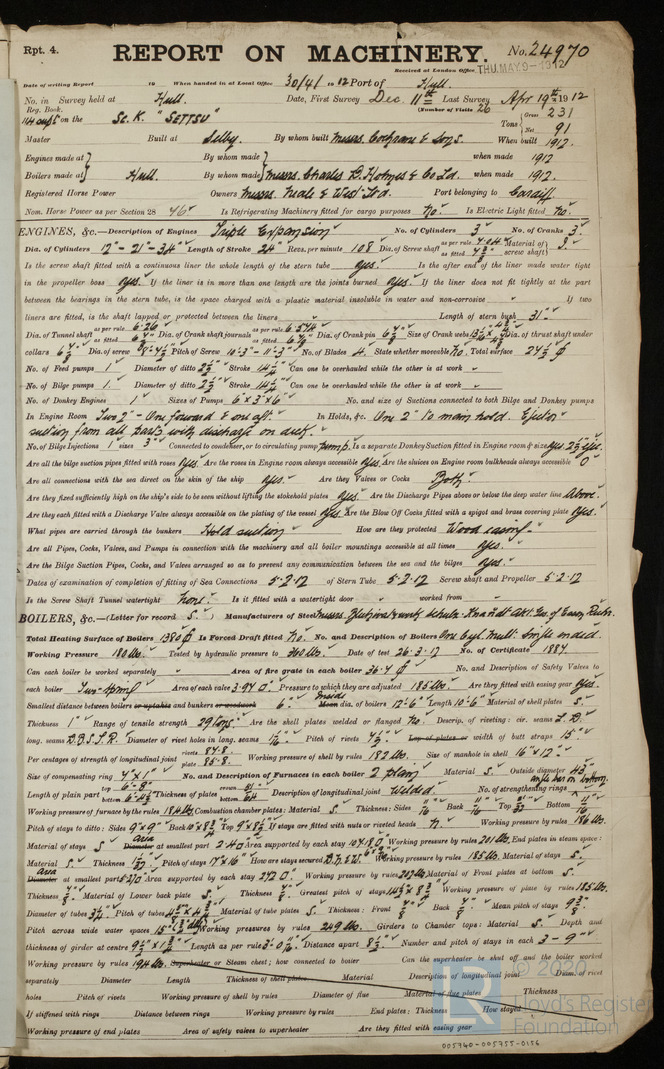 Rpt. 4. REPORT ON MACHINERY. No. 24970
Received at London Office THU. MAY. 9 - 1912
Date of writing Report 19 When handed in at Local Office 30/4/ 1912 Port of Hull.
No. in Survey held at Hull. Date, First Survey Dec. 11th Last Survey Apr 19th 1912
Reg. Book. (Number of Visits 26
on the Sc. K. "SETTSU" Tons Gross 231 Net 91
Master Built at Selby. By whom built Messrs. Cochrane & Sons. When built 1912.
Engines made at By whom made when made 1912
Boilers made at Hull. By whom made Messrs. Charles D. Holmes & Co Ld. when made 1912.
Registered Horse Power Owners Messrs. Neale & West Ld. Port belonging to Cardiff
Nom. Horse Power as per Section 28 76 Is Refrigerating Machinery fitted for cargo purposes No. Is Electric Light fitted No.
ENGINES, &c.—Description of Engines Triple Expansion No. of Cylinders 3 No. of Cranks 3
Dia. of Cylinders 12" - 21" - 34" Length of Stroke 24" Revs. per minute 108 Dia. of Screw shaft as per rule 7.04 as fitted Material of screw shaft S.
Is the screw shaft fitted with a continuous liner the whole length of the stern tube Yes. Is the after end of the liner made water tight
in the propeller boss Yes. If the liner is in more than one length are the joints burned Yes. If the liner does not fit tightly at the part
between the bearings in the stern tube, is the space charged with a plastic material insoluble in water and non-corrosive If two
liners are fitted, is the shaft lapped or protected between the liners Length of stern bush 31"
Dia. of Tunnel shaft as per rule 6.26 as fitted Dia. of Crank shaft journals as per rule 6.574 as fitted 6 7/8 Dia. of Crank pin 6 7/8 Size of Crank webs Dia. of thrust shaft under
collars 6 7/8 Dia. of screw Pitch of Screw 10'-3" - 11'-3" No. of Blades 4. State whether moveable No. Total surface 27 1/2
No. of Feed pumps 1. Diameter of ditto 2 1/2 Stroke 14 1/4 Can one be overhauled while the other is at work
No. of Bilge pumps 1. Diameter of ditto 2 1/2 Stroke 14 1/4 Can one be overhauled while the other is at work
No. of Donkey Engines 1 Sizes of Pumps 6" x 3" x 6" No. and size of Suctions connected to both Bilge and Donkey pumps
In Engine Room Two 2" - One forward & one aft. In Holds, &c. One 2" to main hold. Ejector
suction from all parts with discharge on deck.
No. of Bilge Injections 1 sizes 3" Connected to condenser, or to circulating pump pump. Is a separate Donkey Suction fitted in Engine room & size Yes 2 1/2
Are all the bilge suction pipes fitted with roses Yes. Are the roses in Engine room always accessible Yes. Are the sluices on Engine room bulkheads always accessible
Are all connections with the sea direct on the skin of the ship Yes Are they Valves or Cocks Both.
Are they fixed sufficiently high on the ship's side to be seen without lifting the stokehold plates Yes. Are the Discharge Pipes above or below the deep water line Above.
Are they each fitted with a Discharge Valve always accessible on the plating of the vessel Yes. Are the Blow Off Cocks fitted with a spigot and brass covering plate Yes.
What pipes are carried through the bunkers Hold suction How are they protected Wood casing
Are all Pipes, Cocks, Valves, and Pumps in connection with the machinery and all boiler mountings accessible at all times Yes.
Are the Bilge Suction Pipes, Cocks, and Valves arranged so as to prevent any communication between the sea and the bilges Yes.
Dates of examination of completion of fitting of Sea Connections 5-2-12 of Stern Tube 5-2-12 Screw shaft and Propeller 5-2-12
Is the Screw Shaft Tunnel watertight None. Is it fitted with a watertight door worked from
BOILERS, &c.—(Letter for record S.) Manufacturers of Steel Messrs. Schulz-Knaudt Akt. Ges. of Essen, Ruhr.
Total Heating Surface of Boilers 1380 Is Forced Draft fitted No. No. and Description of Boilers One Cyl. Mult. Single ended.
Working Pressure 180 lbs. Tested by hydraulic pressure to 360 lbs. Date of test 26-3-12 No. of Certificate 1887
Can each boiler be worked separately Area of fire grate in each boiler 36.4 No. and Description of Safety Valves to
each boiler Two - Spring Area of each valve 3.97 Pressure to which they are adjusted 185 lbs. Are they fitted with easing gear Yes.
Smallest distance between boilers or uptakes and bunkers or woodwork 6" Inside Mean dia. of boilers 12'-6" Length 10'-6" Material of shell plates S.
Thickness 1" Range of tensile strength 29 tons. Are the shell plates welded or flanged No. Descrip. of riveting: cir. seams L. D.
long. seams D.B.S.T.R. Diameter of rivet holes in long. seams 1 1/16 Pitch of rivets 7 1/2 Lap of plates or width of butt straps 15"
Per centages of strength of longitudinal joint rivets 87.8 plate 85.8 Working pressure of shell by rules 182 lbs. Size of manhole in shell 16" x 12"
Size of compensating ring 7" x 1" No. and Description of Furnaces in each boiler 2 plain Material S. Outside diameter 43"
Length of plain part top 6'-8" bottom Thickness of plates crown bottom Description of longitudinal joint Welded No. of strengthening rings angle bar on bottom.
Working pressure of furnace by the rules 184 lbs. Combustion chamber plates: Material S. Thickness: Sides 11/16 Back 11/16 Top Bottom 11/16
Pitch of stays to ditto: Sides 9" x 9" Back Top If stays are fitted with nuts or riveted heads N. Working pressure by rules 186 lbs.
Material of stays S. area Diameter at smallest part 2.40 Area supported by each stay 104.18 Working pressure by rules 201 lbs. End plates in steam space:
Material S. Thickness Pitch of stays 17" x 16" How are stays secured D.N. & W. Working pressure by rules 185 lbs. Material of stays S.
area Diameter at smallest part 5.20 Area supported by each stay 272 Working pressure by rules 207 lbs. Material of Front plates at bottom S.
Thickness 7/8 Material of Lower back plate S. Thickness 7/8 Greatest pitch of stays Working pressure of plate by rules 185 lbs.
Diameter of tubes 3 1/4 Pitch of tubes Material of tube plates S. Thickness: Front 7/8 Back Mean pitch of stays 9 3/8
Pitch across wide water spaces Working pressures by rules 249 lbs. Girders to Chamber tops: Material S. Depth and
thickness of girder at centre Length as per rule Distance apart 8 1/2 Number and pitch of stays in each 3 - 9"
Working pressure by rules 194 lbs. Superheater or Steam chest; how connected to boiler Can the superheater be shut off and the boiler worked
separately Diameter Length Thickness of shell plates Material Description of longitudinal joint Diam. of rivet
holes Pitch of rivets Working pressure of shell by rules Diameter of flue Material of flue plates Thickness
If stiffened with rings Distance between rings Working pressure by rules End plates: Thickness How stayed
Working pressure of end plates Area of safety valves to superheater Are they fitted with easing gear
© 2020
Lloyd's Register
Foundation
005740-005755-0156